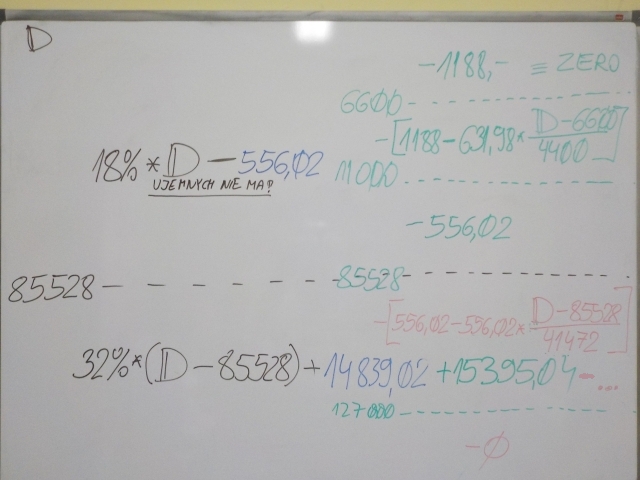 D
-1188,- ≡ ZERO
6600
-[1188-631,98*(D-6600)/4400]
18% * D - 556,02
UJEMNYCH NIE MA?
11000
-556,02
85528 85528
-[556,02-556,02*(D-85528)/41472]
32%*(D-85528)+14839,02 +15395,04-...
127000
-0